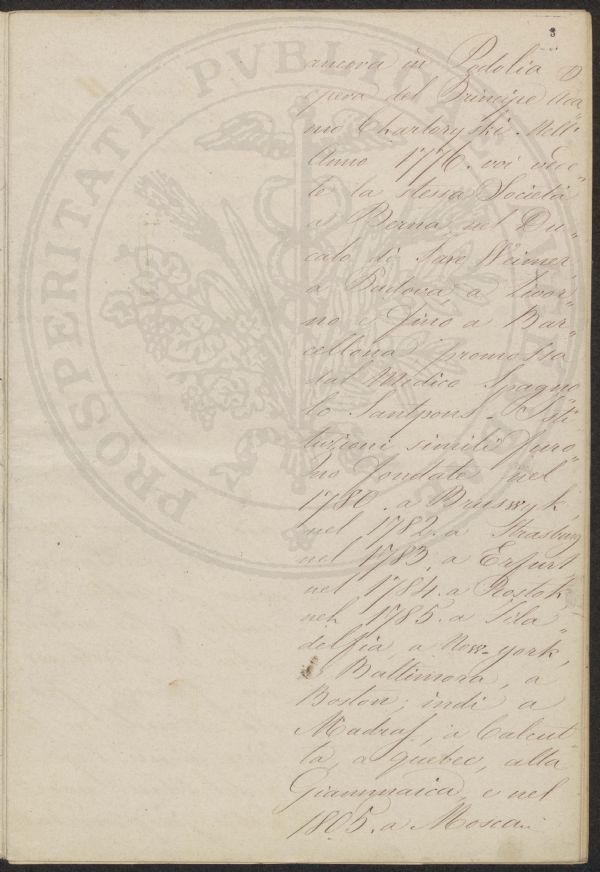 3
ancora in Podolia O
pera del Principe Ada
mo Chartoryski. Nell'
Anno 1776. voi vede
te la stessa Società
a Berna, nel Du„
cato di Saxe Weimer,
a Padova, a Livor„
no e fino a Bar„
cellona promossa
dal Medico Spagno
lo Santpons. Isti
tuzioni simili furo„
no fondate nel
1780. a Brunswyk,
nel 1782. a Strasburg
nel 1783. a Erfurt
nel 1784. a Rostok,
nel 1785. a Fila„
delfia, a Now-york,
a Baltimora, a
Boston; indi a
Madras, a Calcut
ta, a Quebec, alla
Giammaica, e nel
1805. a Mosca.
PROSPERITATI PVBLICAE